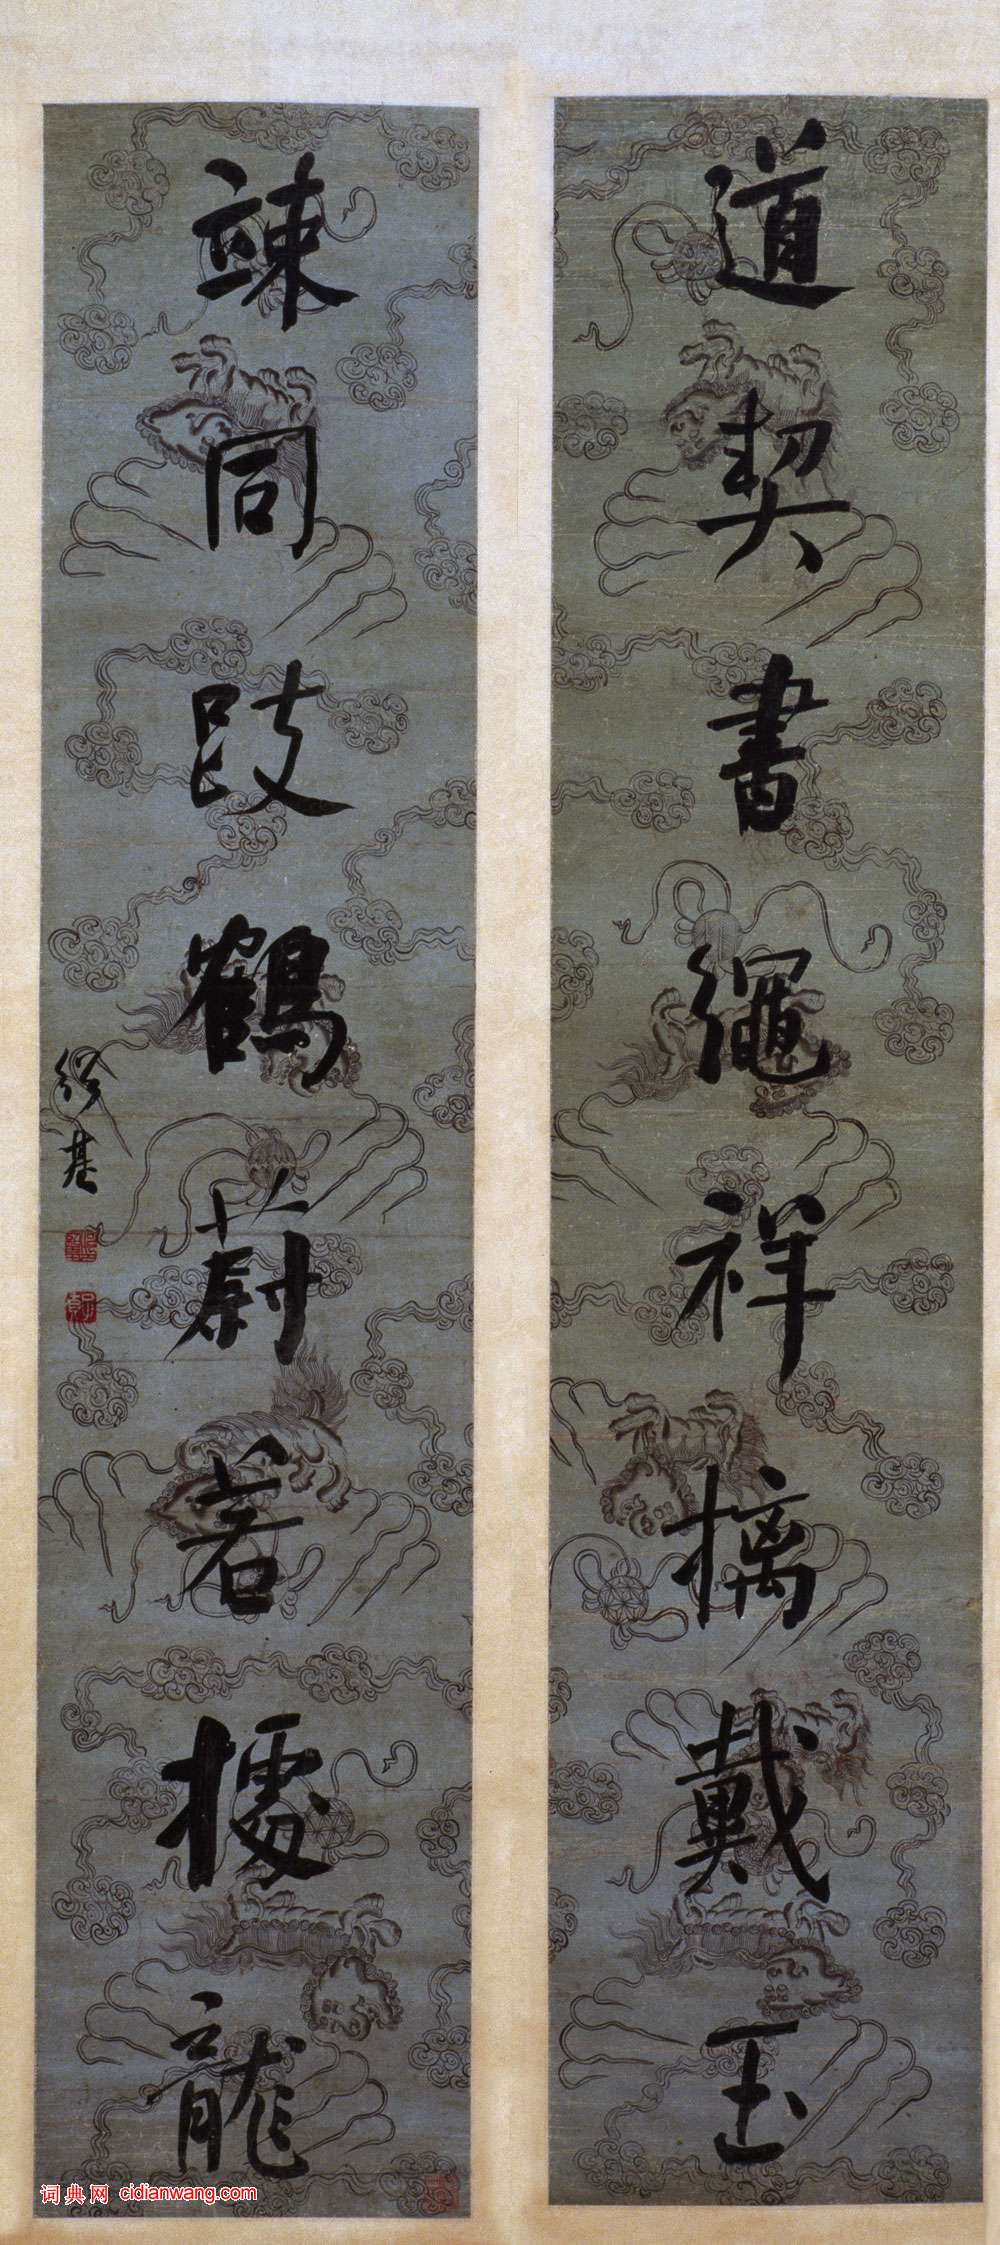 道契書繩祥摛戴玉
竦同跂鶴蔚若據龍
紹基
子貞
词典网 cidianwang.com